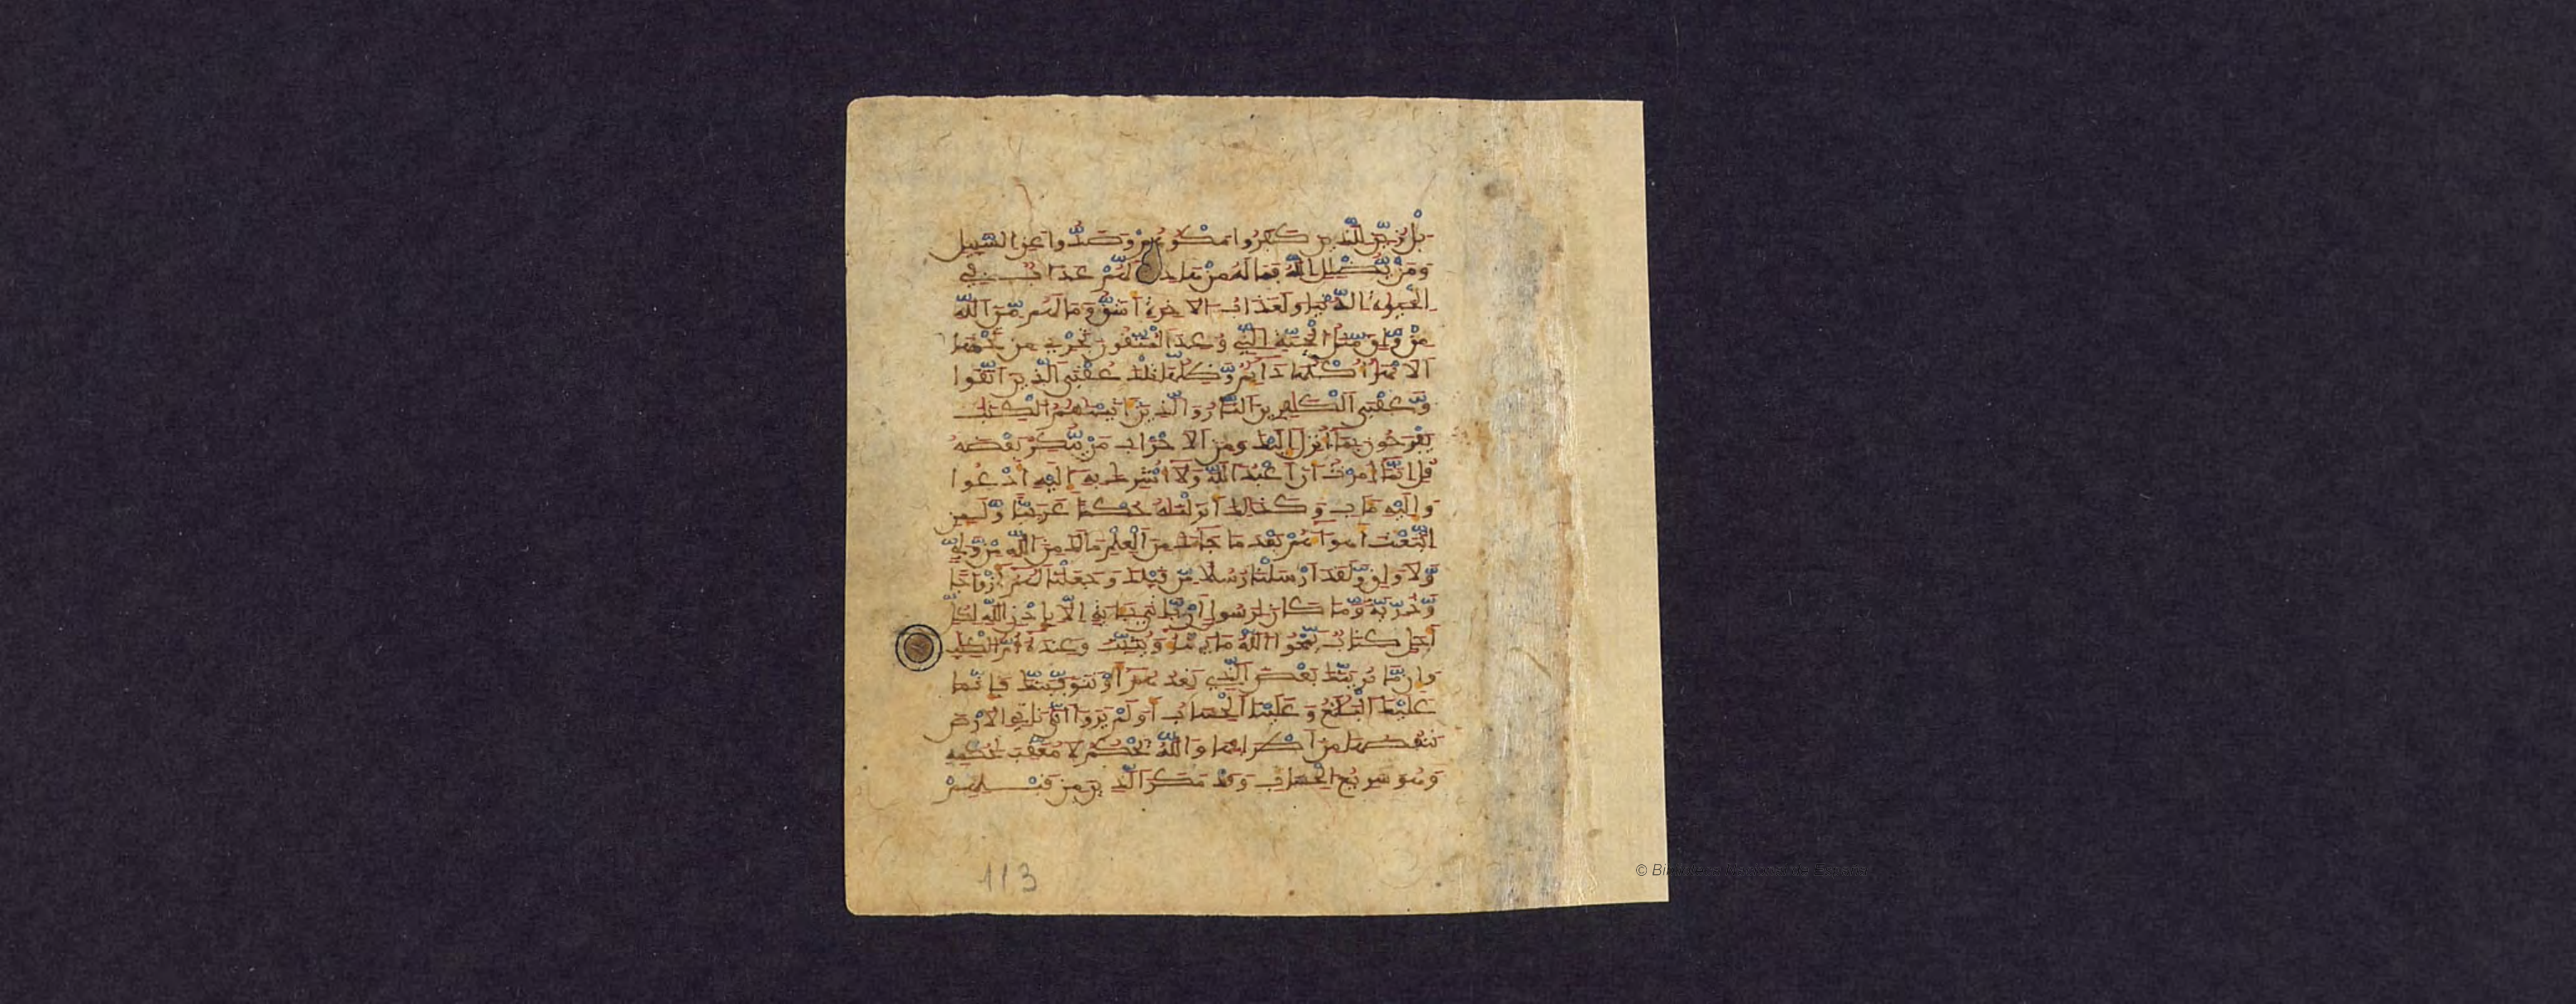 بَلْ زُيِّنَ لِلَّذِينَ كَفَرُوا مَكْرُهُمْ وَصَدُّوا عَنِ السَّبِيلِ
وَمَنْ يُّضْلِلِ اللَّهُ فَمَا لَهُ مِنْ هَادٍ لَّهُمْ عَذَابٌ فِي
الْحَيَوٰةِ الدُّنْيَا وَلَعَذَابُ الَاخِرَةِ أَشَقُّ وَمَا لَهُم مِّنَ اللَّهِ
مِنْ وَّاقٍ مَّثَلُ الْجَنَّةِ الَّتِي وُعِدَ الْمُتَّقُونَ تَجْرِي مِن تَحْتِهَا
الَانْهَٰرُ أُكْلُهَا دَائِمٌ وَّظِلُّهَا تِلْكَ عُقْبَى الَّذِينَ اتَّقَوا
وَّعُقْبَى الْكَٰفِرِينَ النَّارُ وَالَّذِينَ ءَاتَيْنَٰهُمُ الْكِتَٰبَ
يَفْرَحُونَ بِمَا أُنزِلَ إِلَيْكَ وَمِنَ الَاحْزَابِ مَنْ يُّنكِرُ بَعْضَهُ
قُلِ انَّمَا أُمِرْتُ أَنَ اعْبُدَ اللَّهَ وَلَا أُشْرِكَ بِهِ إِلَيْهِ أَدْعُوا
وَإِلَيْهِ مَـَٔابِ وَكَذَٰلِكَ أَنزَلْنَٰهُ حُكْمًا عَرَبِيًّا وَّلَئِنِ
اتَّبَعْتَ أَهْوَاءَهُم بَعْدَ مَا جَاءَكَ مِنَ الْعِلْمِ مَا لَكَ مِنَ اللَّهِ مِنْ وَّلِيٍّ
وَّلَا وَاقٍ وَّلَقَدَ ارْسَلْنَا رُسُلًا مِّن قَبْلِكَ وَجَعَلْنَا لَهُمُ أَزْوَٰجًا
وَّذُرِّيَّةً وَّمَا كَانَ لِرَسُولٍ أَنْ يَّاتِيَ بِـَٔايَةٍ إِلَّا بِإِذْنِ اللَّهِ لِكُلِّ
أَجَلٍ كِتَابٌ يَّمْحُوا اللَّهُ مَا يَشَاءُ وَيُثَبِّتُ وَعِندَهُ أُمُّ الْكِتَٰبِ
وَإِن مَّا نُرِيَنَّكَ بَعْضَ الَّذِي نَعِدُهُمُ أَوْ نَتَوَفَّيَنَّكَ فَإِنَّمَا
عَلَيْكَ الْبَلَٰغُ وَعَلَيْنَا الْحِسَابُ أَوَلَمْ يَرَوَا انَّا نَاتِي الَارْضَ
نَنقُصُهَا مِنَ اطْرَافِهَا وَاللَّهُ يَحْكُمُ لَا مُعَقِّبَ لِحُكْمِهِ
وَهُوَ سَرِيعُ الْحِسَابِ وَقَدْ مَكَرَ الَّذِينَ مِن قَبْلِهِمْ
113